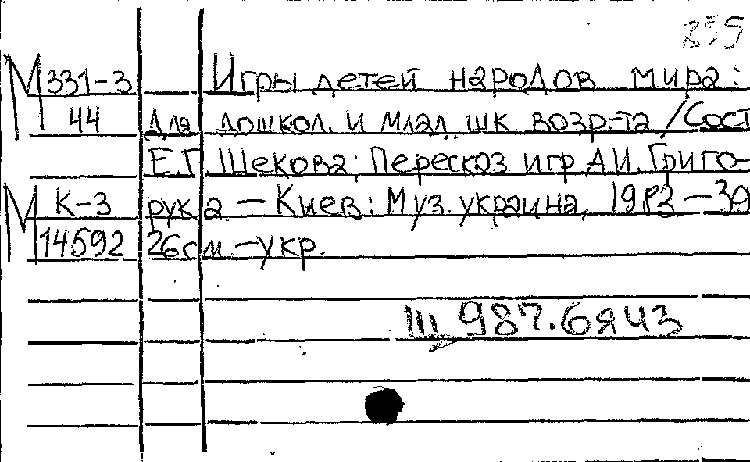 М 331-3 Игры детей народов мира:
44 Для дошкол. и млад шк возр-та / Сост
Е.Г. Щекова; Пересказ игр А.И. Григо-
М К-3 рука — Киев: Муз. украина, 1983 — 39
14592 26см. — укр.
Ш 987.6я43